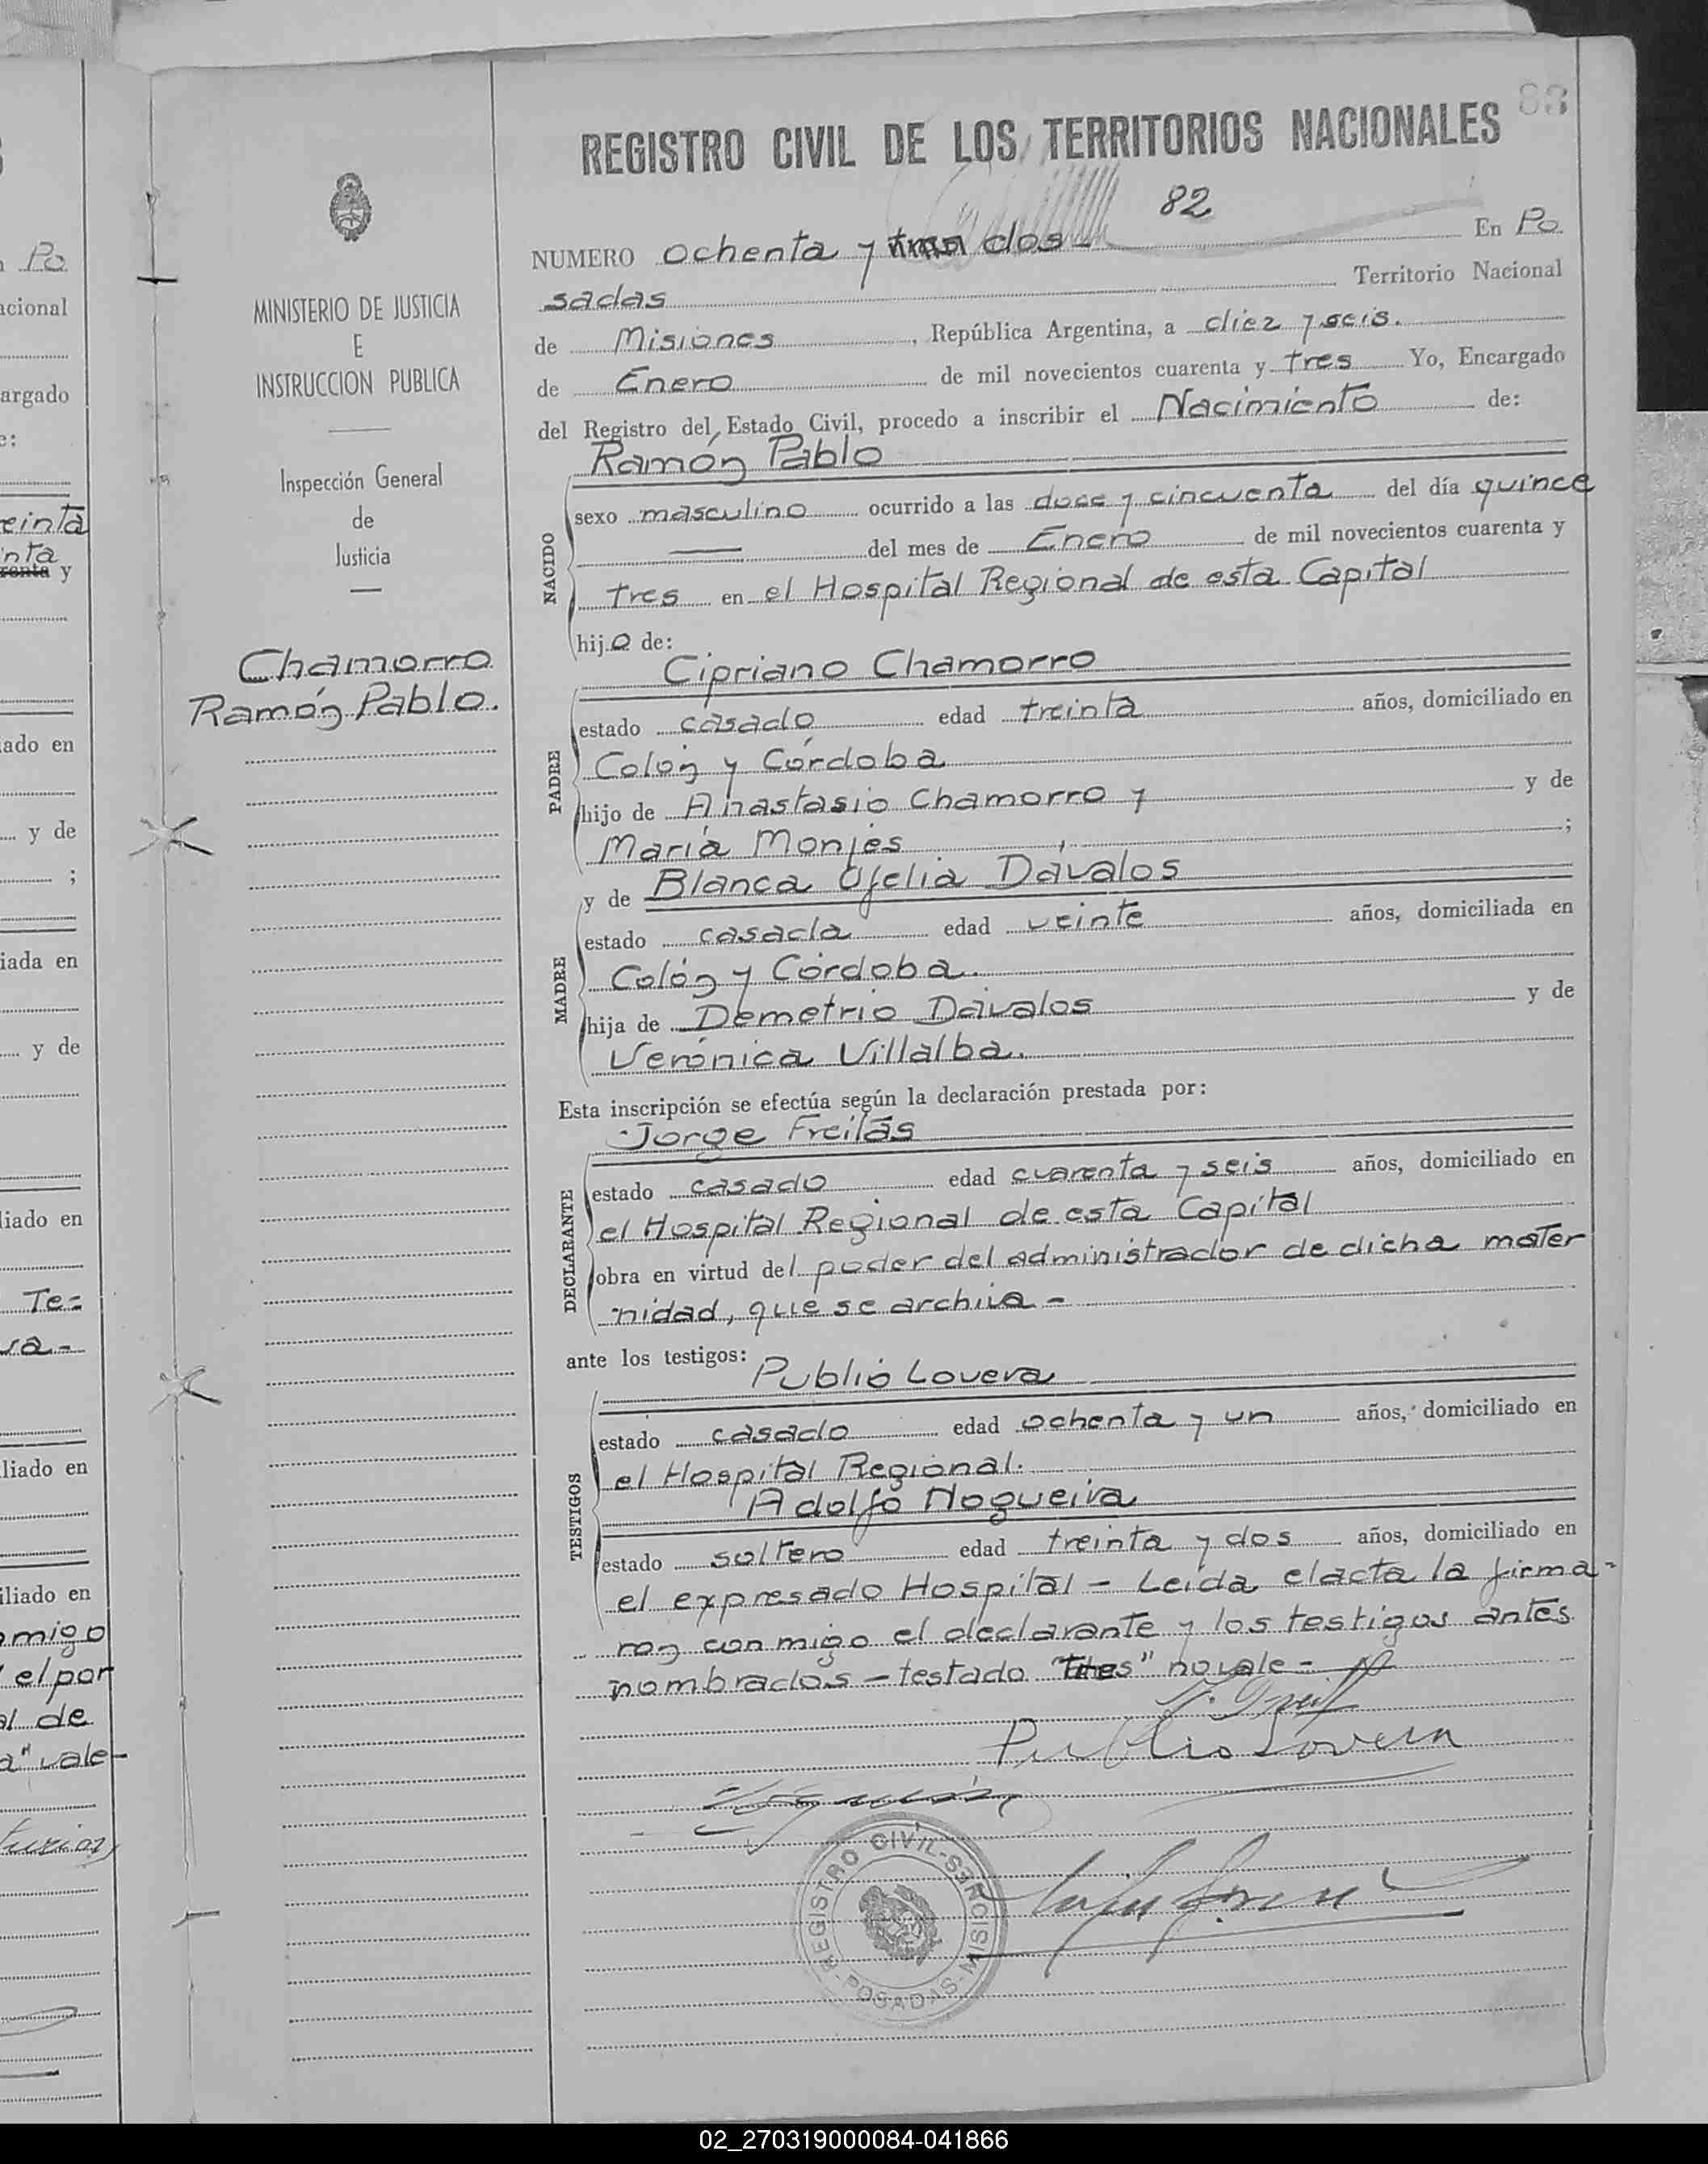 83
REGISTRO CIVIL DE LOS TERRITORIOS NACIONALES
82
NUMERO ochenta y tres dos - En Po
sadas Territorio Nacional
de Misiones, República Argentina, a diez y seis.
de Enero de mil novecientos cuarenta y tres Yo, Encargado
del Registro del Estado Civil, procedo a inscribir el Nacimiento de:
Ramón Pablo
NACIDO
sexo masculino ocurrido a las doce y cincuenta del día quince
del mes de Enero de mil novecientos cuarenta y
tres en el Hospital Regional de esta Capital
hijo de:
Cipriano Chamorro
PADRE
estado casado edad treinta años, domiciliado en
Colón y Córdoba
hijo de Anastasio Chamorro y y de
María Monjes ;
y de Blanca Ofelia Dávalos
MADRE
estado casada edad veinte años, domiciliada en
Colón y Córdoba.
hija de Demetrio Dávalos y de
Verónica Villalba.
Esta inscripción se efectúa según la declaración prestada por:
Jorge Freilás
DECLARANTE
estado casado edad cuarenta y seis años, domiciliado en
el Hospital Regional de esta Capital
obra en virtud del poder del administrador de dicha mater
nidad, que se archiva -
ante los testigos:
Publio Lovera
TESTIGOS
estado casado edad ochenta y un años, domiciliado en
el Hospital Regional.
Adolfo Nogueira
estado soltero edad treinta y dos años, domiciliado en
el expresado Hospital - Leída el acta la firma-
ron conmigo el declarante y los testigos antes
nombrados - testado "tres" no vale -
Publio Lovera
REGISTRO CIVIL-SERC 1ª-POSADAS-MISIONES
MINISTERIO DE JUSTICIA
E
INSTRUCCION PUBLICA
Inspección General
de
Justicia
Chamorro
Ramón Pablo.
Po
acional
argado
e:
einta
nta
renta y
iado en
y de
;
iada en
y de
liado en
Te-
va-
liado en
iliado en
omigo
el por
al de
a" vale-
02_270319000084-041866